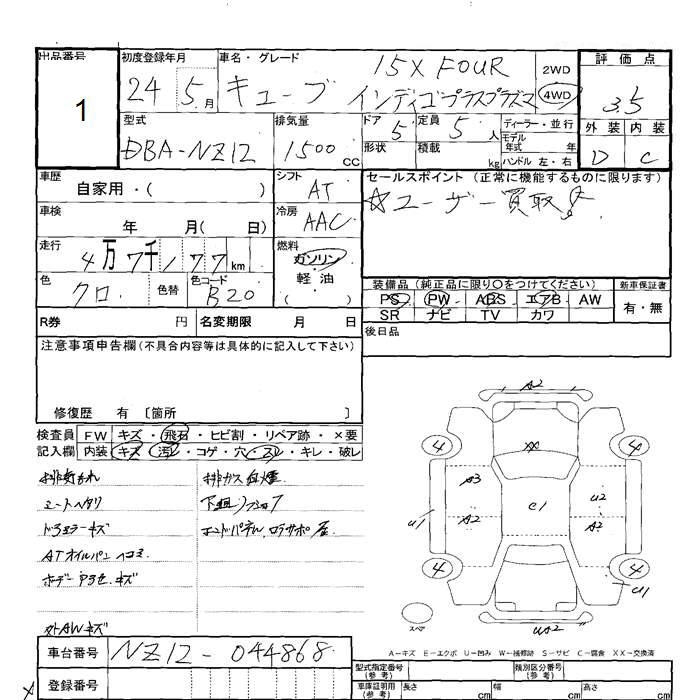 出品番号 初度登録年月 車名・グレード 15X FOUR 2WD 評価点
1 24 5月 キューブ インディゴプラスプラズマ 4WD 3.5
型式 排気量 ドア 5 定員 5人 ディーラー・並行 外装 内装
DBA-NZ12 1500cc 形状 積載 kg モデル年式 年 ハンドル 左・右 D C
車歴 自家用・( ) シフト AT セールスポイント (正常に機能するものに限ります)
車検 年 月( 日) 冷房 AAC ☆ユーザー買取!
走行 4万7千177km 燃料 ガソリン 軽油 ( )
色 クロ 色替 色コード B20 装備品 (純正品に限り○をつけてください) 新車保証書
PS PW ABS エアB AW 有・無
R券 円 名変期限 月 日 SR ナビ TV カワ
注意事項申告欄(不具合内容等は具体的に記入して下さい) 後日品
修復歴 有 〔箇所 〕
検査員 FW キズ・飛石・ヒビ割・リペア跡・×要
記入欄 内装 キズ・汚レ・コゲ・穴・スレ・キレ・破レ
シートヘタリ
ATオイルパン ヘコミ
外AWキズ
A2
4 XX 4
A3
C1 U2
U1 A2 A2
4 4
U1
スペア UA2
A-キズ E-エクボ U-凹み W-補修跡 S-サビ C-腐食 XX-交換済
車台番号 NZ12-044868 型式指定番号(参考) 類別区分番号(参考)
登録番号 車庫証明用(参考) 長さ cm 幅 cm 高さ cm